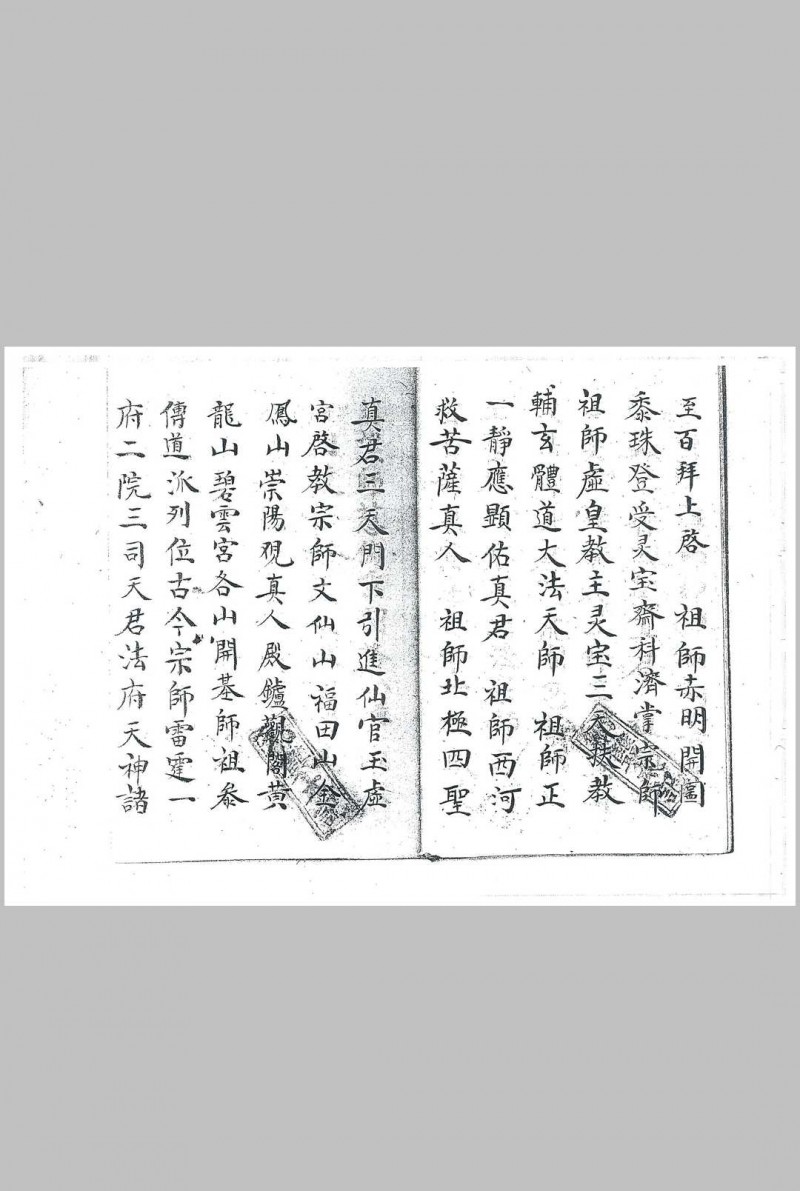 至百拜上啓　祖師赤明開圖
黍珠登受灵宝齋科濟掌宗師
祖師虛皇教主灵宝三天扶教
輔玄體道大法天師　祖師正
一靜應顯佑真君　祖師西河
救苦薩真人　祖師北極四聖
真君三天門下引進仙官玉虛
宮啓教宗師文仙山福田山金
鳳山崇陽观真人殿鑪觀閣黄
龍山碧雲宮各山開基師祖叅
傳道派列位古今宗師雷霆一
府二院三司天君法府天神諸